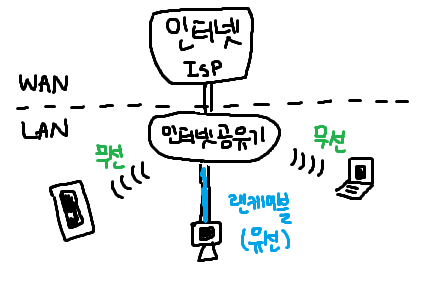 인터넷
ISP
WAN
LAN
인터넷 공유기
무선
무선
랜케이블
(유선)